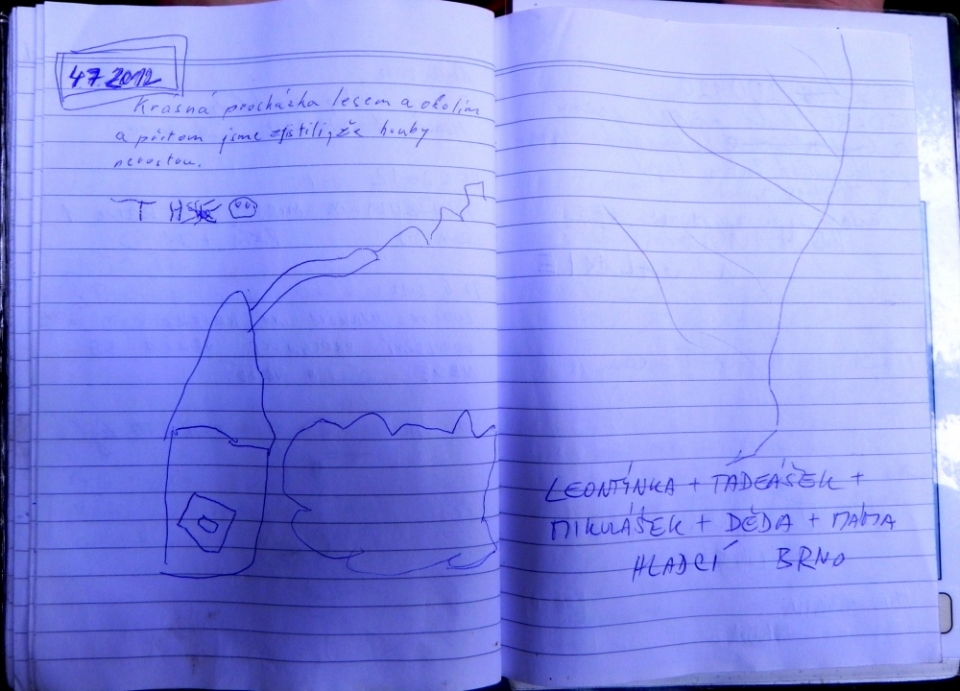 4.7.2012
Krásná procházka lesem a okolím
a přitom jsme zjistili, že houby
nerostou.
T
LEONTÝNKA + TADEÁŠEK +
MIKULÁŠEK + DĚDA + MÁMA
HLADCÍ BRNO